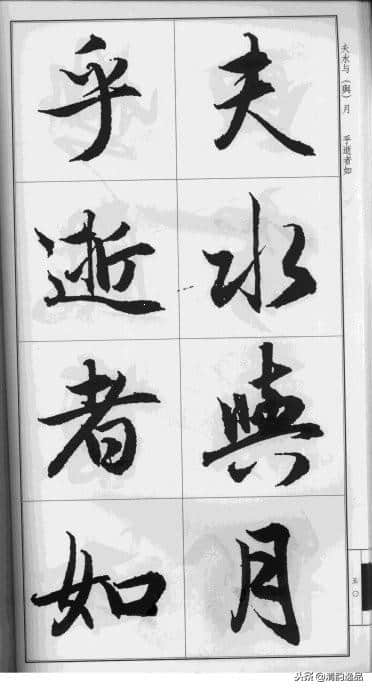 夫水與月
乎逝者如
夫水与(與)月 乎逝者如
五〇
头条@清韵逸品